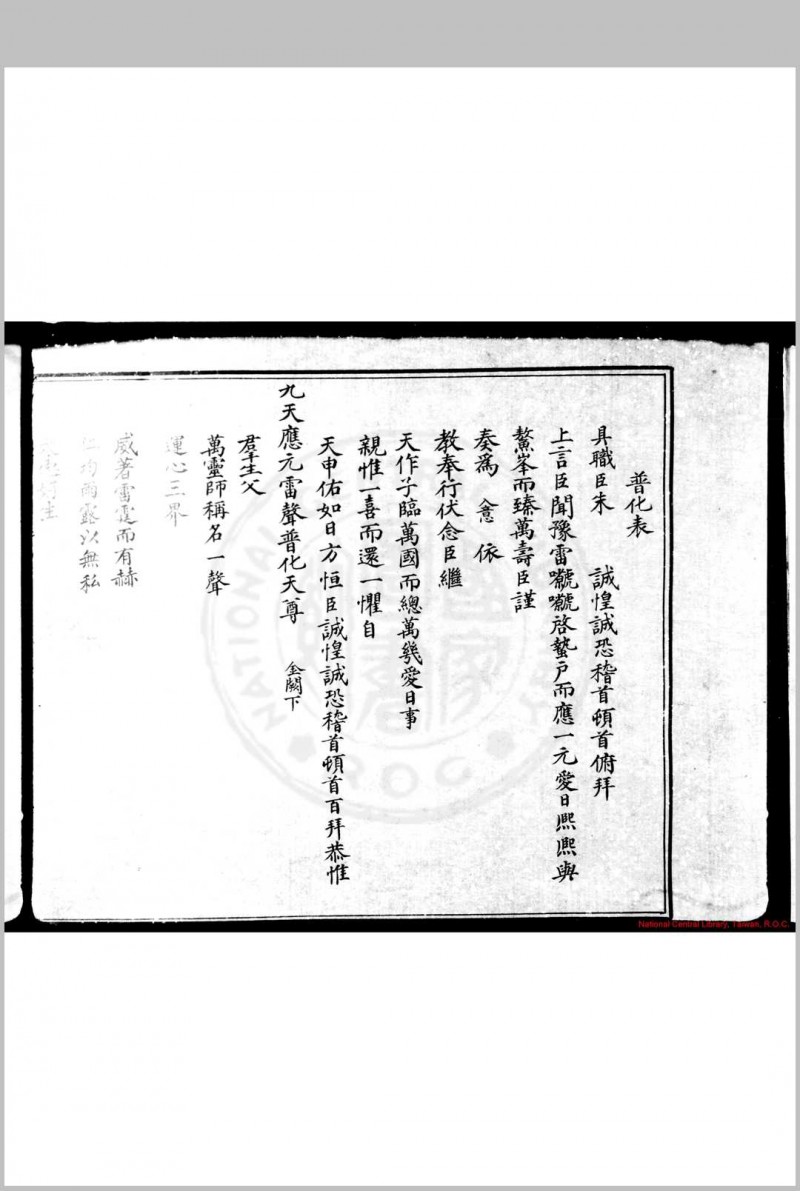 普化表
具職臣朱 誠惶誠恐稽首頓首俯拜
上言臣聞豫雷虩虩啓蟄戶而應一元愛日熙熙與
鰲峯而臻萬壽臣謹
奏為 意 依
教奉行伏念臣繼
天作子臨萬國而總萬幾愛日事
親惟一喜而還一懼自
天申佑如日方恒臣誠惶誠恐稽首頓首百拜恭惟
九天應元雷聲普化天尊 金闕下
羣生父
萬靈師稱名一聲
運心三界
威著雷霆而有赫
仁均雨露以無私
National Central Library, Taiwan, R.O.C.